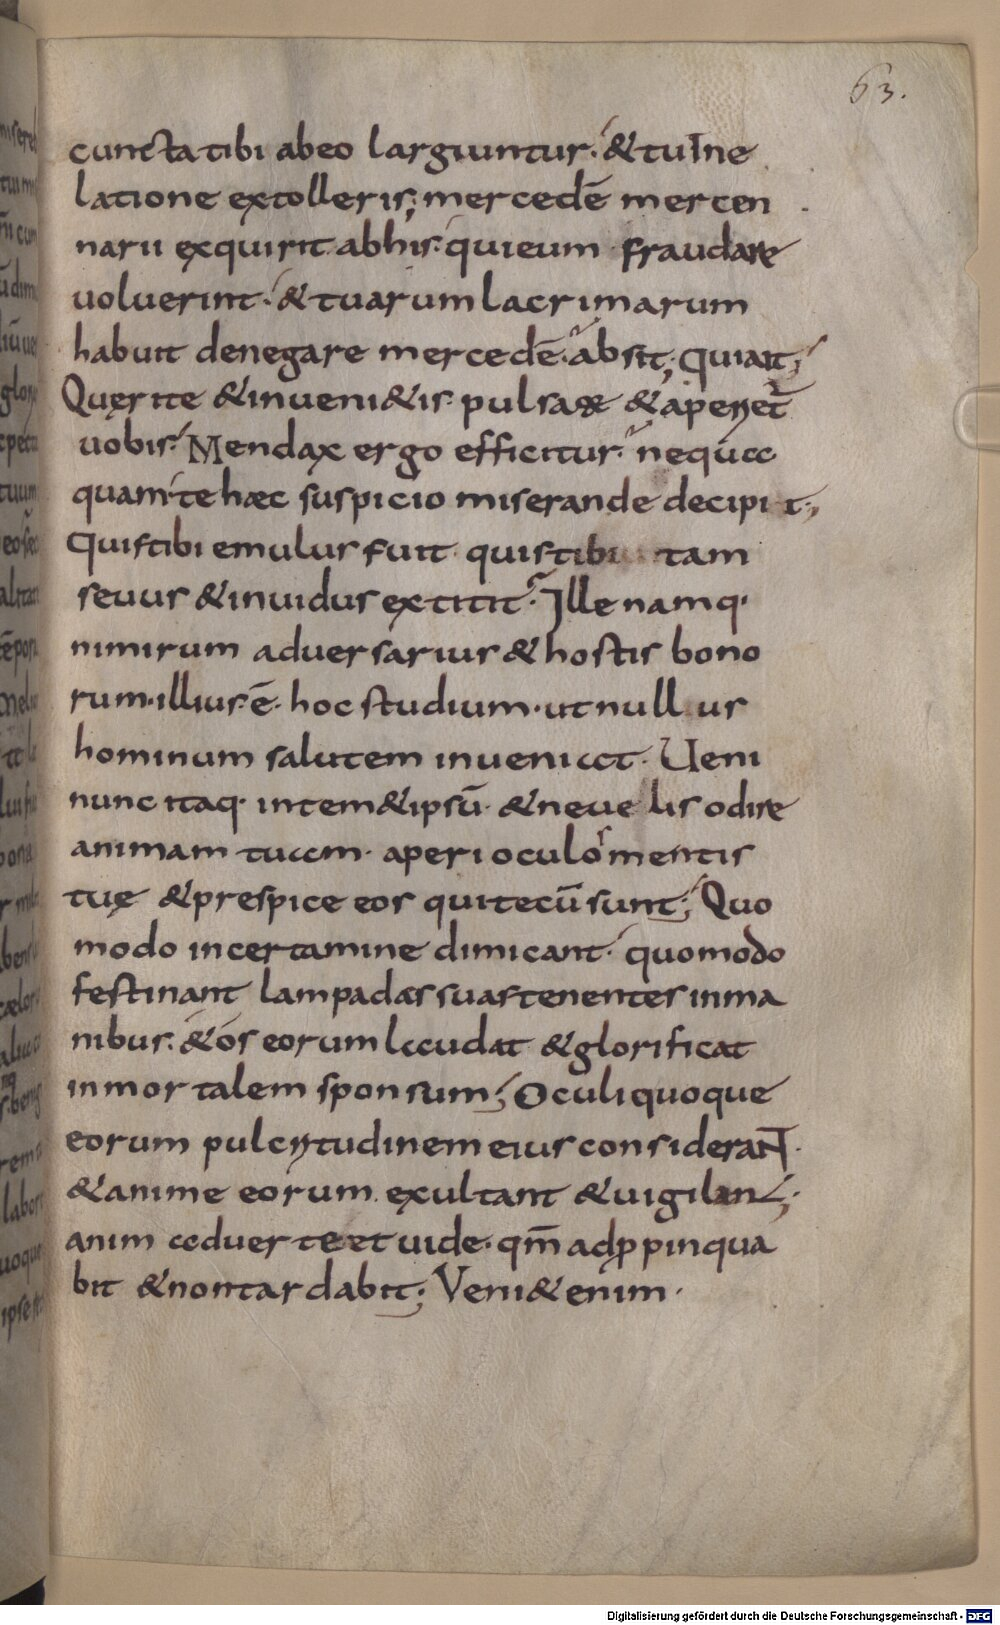 63.
cuncta tibi abeo largiuntur. & tu Ine
latione extolleris; mercedē mercen
narii exquirit abhis. qui eum fraudare
uoluerint. & tuarum lacrimarum
habuit denegare mercedē. absit; Quiait;
Quęrite & inueni&is pulsate & aperiet̄
uobis. Mendax ergo efficitur. nequa
quam te hæc suspicio miserande decipit;
Quis tibi emulus fuit quis tibi tam
seuus & inuidus extitit. Ille namq·
nimirum aduersarius & hostis bono
rum. illius ē. hoc studium. ut nullus
hominum salutem inueniat. Ueni
nunc itaq· intem&ipsū. & ne uelis odire
animam tuam. aperi oculos mentis
tuę & prespice eos qui tecū sunt; Quo
modo in certamine dimicant. quomodo
festinant lampadas suas tenentes in ma
nibus. & ós eorum laudat & glorificat
inmortalem sponsum; Oculi quoque
eorum pulcritudinem eius considerant.
& anime eorum exultant & uigilan;
anim aduerte et uide. qm̄ adpropinqua
bit & non tardabit; Veni& enim.
Digitalisierung gefördert durch die Deutsche Forschungsgemeinschaft - DFG